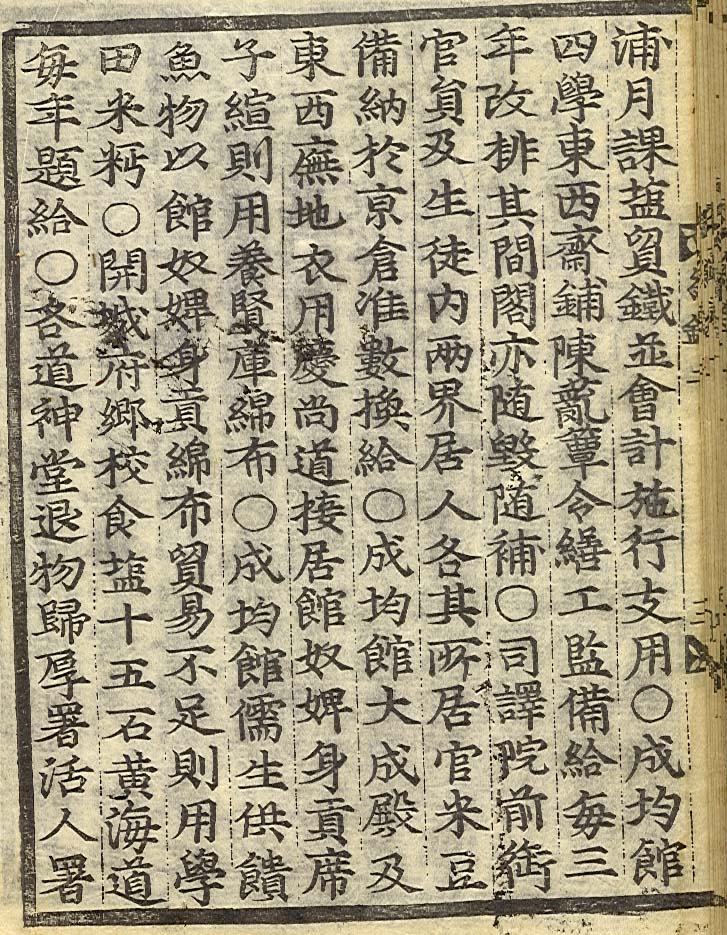 浦月課塩貿鐵並會計施行支用○成均館
四學東西齋鋪陳薍蕈令繕工監備給每三
年改排其間閣亦随毀随補○司譯院前銜
官負及生徒内兩界居人各其所居官米豆
備納於京倉准數換給○成均館大成殿及
東西廡地衣用慶尚道接居館奴婢身貢席
子縇則用養賢庫綿布○成均館儒生供饋
魚物以館奴婢身貢綿布貿易不足則用學
田米麪○開城府郷校食塩十五石黄海道
每年題給○各道神堂退物歸厚署活人署